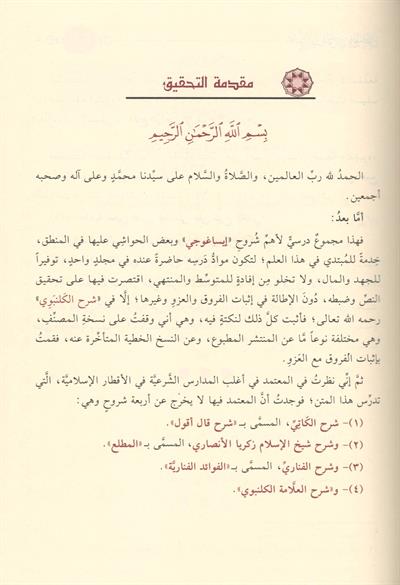 مقدمة التحقيق
بِسْمِ اللَّهِ الرَّحْمَٰنِ الرَّحِيمِ
الحمدُ لله ربِّ العالمين، والصَّلاةُ والسَّلام على سيِّدنا محمَّدٍ وعلى آله وصحبه
أجمعين.
أمَّا بعدُ:
فهذا مجموعٌ درسيٌّ لأهمِّ شُروحِ «إيساغوجي» وبعض الحواشي عليها في المنطق،
خِدمةً للمُبتدي في هذا العلم؛ لتكون موادُّ دَرسِه حاضرةً عنده في مجلدٍ واحدٍ، توفيراً
للجهد والمال، ولا تخلو مِن إفادةٍ للمتوسِّط والمنتهي، اقتصرت فيها على تحقيق
النصِّ وضبطه، دُونَ الإطالة في إثبات الفروق والعزوِ وغيرها؛ إلَّا في «شرح الكَلنبَوي»
رحمه الله تعالى؛ فأثبت كلَّ ذلك لنكتةٍ فيه، وهي أني وقفتُ على نسخةِ المصنِّف،
وهي مختلفة نوعاً مَّا عن المنتشر المطبوع، وعن النسخ الخطية المتأخّرة عنه، فقمتُ
بإثبات الفروق مع العَزوِ.
ثمَّ إنِّي نظرتُ في المعتمد في أغلب المدارس الشَّرعيَّة في الأقطار الإسلاميَّة، الَّتي
تدرِّس هذا المتن؛ فوجدتُ أنَّ المعتمد فيها لا يخرُج عن أربعة شروحٍ وهي:
(١)- شرح الكَاتِيِّ، المسمَّى بـ«شرح قال أقول».
(٢)- وشرح شيخ الإسلام زكريا الأنصاري، المسمى بـ «المطلع».
(٣)- وشرح الفناريِّ، المسمَّى بـ«الفوائد الفناريَّة».
(٤)- و«شرح العلَّامة الكلنبوي».